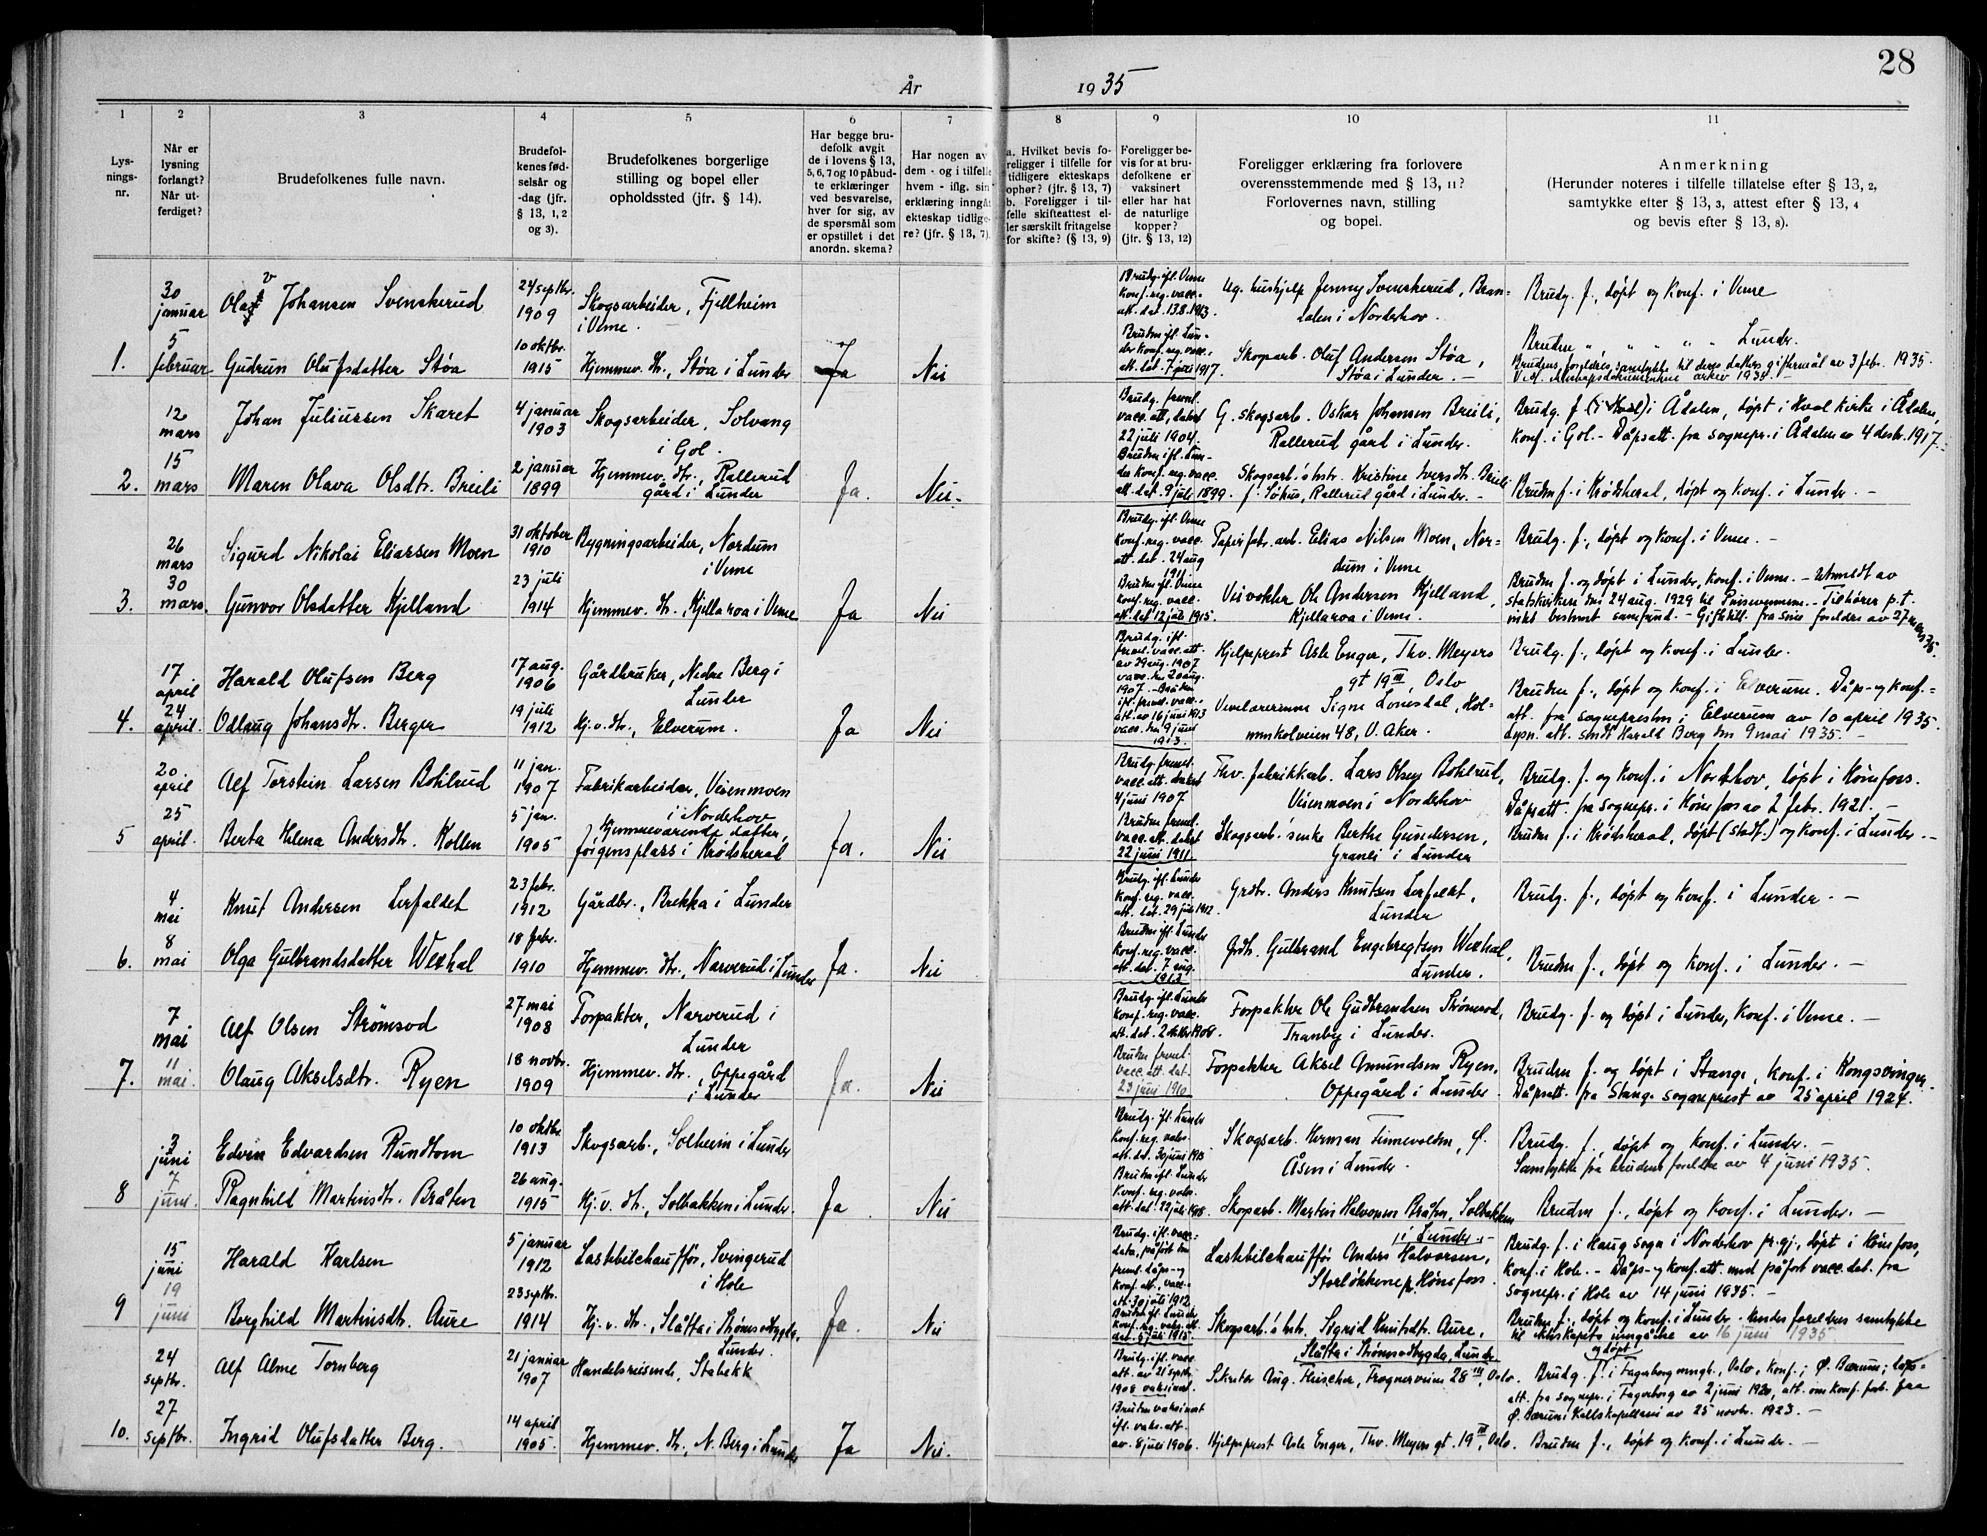 28
År 1935
1 2 3 4 5 6 7 8 9 10 11
Lysningsnr.
Når er lysning forlangt? Når utferdiget?
Brudefolkenes fulle navn.
Brudefolkenes fødselsår og -dag (jfr. § 13, 1, 2 og 3).
Brudefolkenes borgerlige stilling og bopel eller opholdssted (jfr. § 14).
Har begge brudefolk avgit de i lovens § 13, 5, 6, 7 og 10 påbudte erklæringer ved besvarelse, hver for sig, av de spørsmål som er opstillet i det anordn. skema?
Har nogen av dem - og i tilfelle hvem - iflg. sin erklæring inngåt ekteskap tidligere? (jfr. § 13, 7).
a. Hvilket bevis foreligger i tilfelle for tidligere ekteskaps ophør? (jfr. § 13, 7)
b. Foreligger i tilfelle skifteattest eller særskilt fritagelse for skifte? (§ 13, 9)
Foreligger bevis for at brudefolkene er vaksinert eller har hat de naturlige kopper? (jfr. § 13, 12)
Foreligger erklæring fra forlovere overensstemmende med § 13, 11? Forlovernes navn, stilling og bopel.
Anmerkning
(Herunder noteres i tilfelle tillatelse efter § 13, 2, samtykke efter § 13, 3, attest efter § 13, 4 og bevis efter § 13, 8).
30 januar Olav Johansen Svenskerud 24 septbr. 1909 Skogsarbeider, Fjellheim i Veme.
Brudg. ifl. Veme konf. reg. vacc. att. dat. 13.8.1913
Ug. hushjelp Jenny Svenskerud, Brandalen i Norderhov.
Brudg. f., døpt og konf. i Veme
1. 5 februar Gudrun Olufsdatter Støa 10 oktbr. 1915 Hjemmev. dtr., Støa i Lunder Ja Nei
Bruden ifl. Lunder konf. reg. vacc. att. dat. 7 juli 1917.
Skogsarb. Oluf Andersen Støa, Støa i Lunder. —
Bruden " " " " " Lunder.
Brudens foreldres samtykke til deres datters giftermål av 3 febr. 1935.
12 mars Johan Juliussen Skaret 4 januar 1903 Skogsarbeider, Solvang i Gol.
Brudg. freml. vacc. att. datert 22 juli 1904.
G. skogsarb. Oskar Johansen Breili, Rallerud gård i Lunder.
Brudg. f. (i Hval) i Ådalen, døpt i Hval kirke i Ådalen, konf. i Gol. - Dåpsatt. fra sognepr. i Ådalen av 4 desbr. 1917.
2. 15 mars Maren Olava Olsdtr. Breili 2 januar 1899 Hjemmev. dtr., Rallerud gård i Lunder Ja. Nei.
Bruden ifl. Lunder konf. reg. vacc. att. dat. 9 juli 1899.
Skogsarb.'s hstr. Kristine Iversdtr. Breili f. Søhus, Rallerud gård i Lunder. -
Bruden f. i Krødsherad, døpt og konf. i Lunder. —
26 mars Sigurd Nikolai Eliassen Moen 31 oktober 1910 Bygningsarbeider, Nordum i Veme
Brudg. ifl. Veme konf. reg. vacc. att. dat. 24 aug 1911
Papirfabr. arb. Elias Nilsen Moen, Nordum i Veme
Brudg. f., døpt og konf. i Veme. —
3. 30 mars. Gunvor Olsdatter Kjelland 23 juli 1914 Hjemmev. dtr., Kjellaroa i Veme Ja Nei
Bruden ifl. Veme konf. reg. vacc. att. dat. 12 juli 1915.
Veivokter Ole Andersen Kjelland, Kjellaroa i Veme.
Bruden f. og døpt i Lunder, konf. i Veme. - Utmeldt av statskirken den 24 aug. 1929 til Pinsevennene. - Tilhører p.t. intet bestemt samfund. - Giftetill. fra sine foreldre av 27 mars 35.
17 april Harald Olufsen Berg 17 aug. 1906 Gårdbruker, Nedre Berg i Lunder
Brudg. ifl. freml. vacc. att. av 29 aug. 1907 vacc. den 20 aug. 1907.
Hjelpeprest Asle Enger, Thv. Meyers gt 19 III, Oslo
Brudg. f., døpt og konf. i Lunder.
4. 24 april. Odlaug Johansdtr. Berger 19 juli 1912 Hj.v. dtr., Elverum. Ja Nei
Bruden ifl. freml. vacc. att. av 16 juni 1913 vacc. den 9 juni 1913.
Vevelærerinne Signe Lonesdal, Holmenkolveien 48, V. Aker.
Bruden f., døpt og konf. i Elverum. Dåps- og konf. att. fra sognepresten i Elverum av 10 april 1935. Lysn. att. sendt Harald Berg den 9 mai 1935. —
20 april Alf Torstein Larsen Bohlrud 11 jan. 1907 Fabrikarbeider, Veienmoen i Norderhov
Brudg. freml. vacc. att. datert 4 juni 1907
Thv. fabrikkarb. Lars Olsen Bohlrud, Veienmoen i Norderhov
Brudg. f. og konf. i Norderhov, døpt i Hønefoss. Dåpsatt. fra sognepr. i Hønefoss av 2 febr. 1921. —
5 25 april. Berta Helena Andersdtr. Kollen 5 jan. 1905 Hjemmeværende datter, Jørgensplass i Krødsherad Ja. Nei
Bruden freml. vacc. att. datert 22 juni 1911
Skogsarb.'s enke Berthe Gundersen, Granli i Lunder
Bruden f. i Krødsherad, døpt (stadf.) og konf. i Lunder. —
4 mai Knut Andersen Lerfaldet 23 febr. 1912 Gårdbr., Brekka i Lunder
Brudg. ifl. Lunder konf. reg. vacc. att. dat. 29 juli 1912.
Grdbr. Anders Knutsen Lerfaldet, Lunder
Brudg. f., døpt og konf. i Lunder. —
6. 8 mai Olga Gulbrandsdatter Wexhal 18 febr. 1910 Hjemmev. dtr., Narverud i Lunder Ja. Nei
Bruden ifl. Lunder konf. reg. vacc. att. dat. 7 aug. 1913
Grdbr. Gulbrand Engebregtsen Wexhal, Lunder.
Bruden f., døpt og konf. i Lunder. —
7 mai Alf Olsen Strømsod 27 mai 1908 Forpakter, Narverud i Lunder
Brudg. ifl. Lunder konf. reg. vacc. att. dat. 2 oktbr 1908.
Forpakter Ole Gudbrandsen Strømsod, Tranby i Lunder.
Brudg. f. og døpt i Lunder, konf. i Veme. —
7. 11 mai. Olaug Akselsdtr. Ryen 18 novbr. 1909 Hjemmev. dtr., Oppegård i Lunder Ja. Nei
Bruden freml. vacc. att. dat. 23 juni 1910
Forpakter Aksel Amundsen Ryen, Oppegård i Lunder
Bruden f. og døpt i Stange, konf. i Kongsvinger. Dåpsatt. fra Stange sogneprest av 25 april 1924.
3 juni Edvin Edvardsen Rundtom 10 oktbr. 1913 Skogsarb., Solheim i Lunder
Brudg. ifl. Lunder konf. reg. vaks. att. dat. 30 juni 1915
Skogsarb. Herman Finnevolden, Ø. Åsen i Lunder.
Brudg. f., døpt og konf. i Lunder. —
Samtykke fra brudens foreldre av 4 juni 1935.
8 7 juni. Ragnhild Martinsdtr. Bråten 26 aug. 1915 Hj.v. dtr., Solbakken i Lunder. Ja. Nei
Bruden ifl. Lunder konf. reg. vaks. att. dat. 22 juli 1918.
Skogsarb. Martin Halvorsen Bråten, Solbakken i Lunder. —
Bruden f., døpt og konf. i Lunder. —
15 juni Harald Karlsen 5 januar 1912 Lastebilchauffør, Svingerud i Hole
Brudg. ifl. vacc. data, påført den freml. dåps- og konf. att., vacc. att. 30 juli 1912
Lastebilchauffør Anders Halvorsen, Storløkken pr. Hønefoss.
Brudg. f. i Haug sogn i Norderhov pr.gj., døpt i Hønefoss, konf. i Hole. - Dåps- og konf. att. med påført vacc. dat. fra sognepr. i Hole av 14 juni 1935. —
9 19 juni Borghild Martinsdtr. Aure 23 septbr. 1914 Hj.v. dtr., Slåtta i Strømsodbygda, Lunder. Ja. Nei
Bruden ifl. Lunder konf. reg. vaks. att. dat. 5 juli 1915.
Skogsarb.'s hstr. Sigrid Knutsdtr. Aure, Slåtta i Strømsodbygda, Lunder
Bruden f., døpt og konf. i Lunder. - Hendes foreldres samtykke til ekteskapets inngåelse av 16 juni 1935.
24 septbr. Alf Alme Tornberg 21 januar 1907 Handelsreisende, Stabekk
Brudg. ifl. vacc. att. av 21 septbr. 1908 vaksinert.
Sekretær Aug. Fleischer, Frognerveien 28 III, Oslo.
Brudg. f. og døpt i Fagerborg mngt., Oslo, konf. i Ø. Bærum; dåpsatt. fra sognepr. i Fagerborg av 2 juni 1920, att. om konf. forb. fra Ø. Bærums kallskapellani av 25 novbr. 1923. —
10. 27 septbr. Ingrid Olufsdatter Berg. 14 april 1905. Hjemmev. dtr., N. Berg i Lunder Ja Nei.
Bruden vaksinert ifl. vaks. att. av 8 juli 1906.
Hjelpeprest Asle Enger, Thv. Meyers gt. 19 III, Oslo.
Bruden f., døpt og konf. i Lunder. —